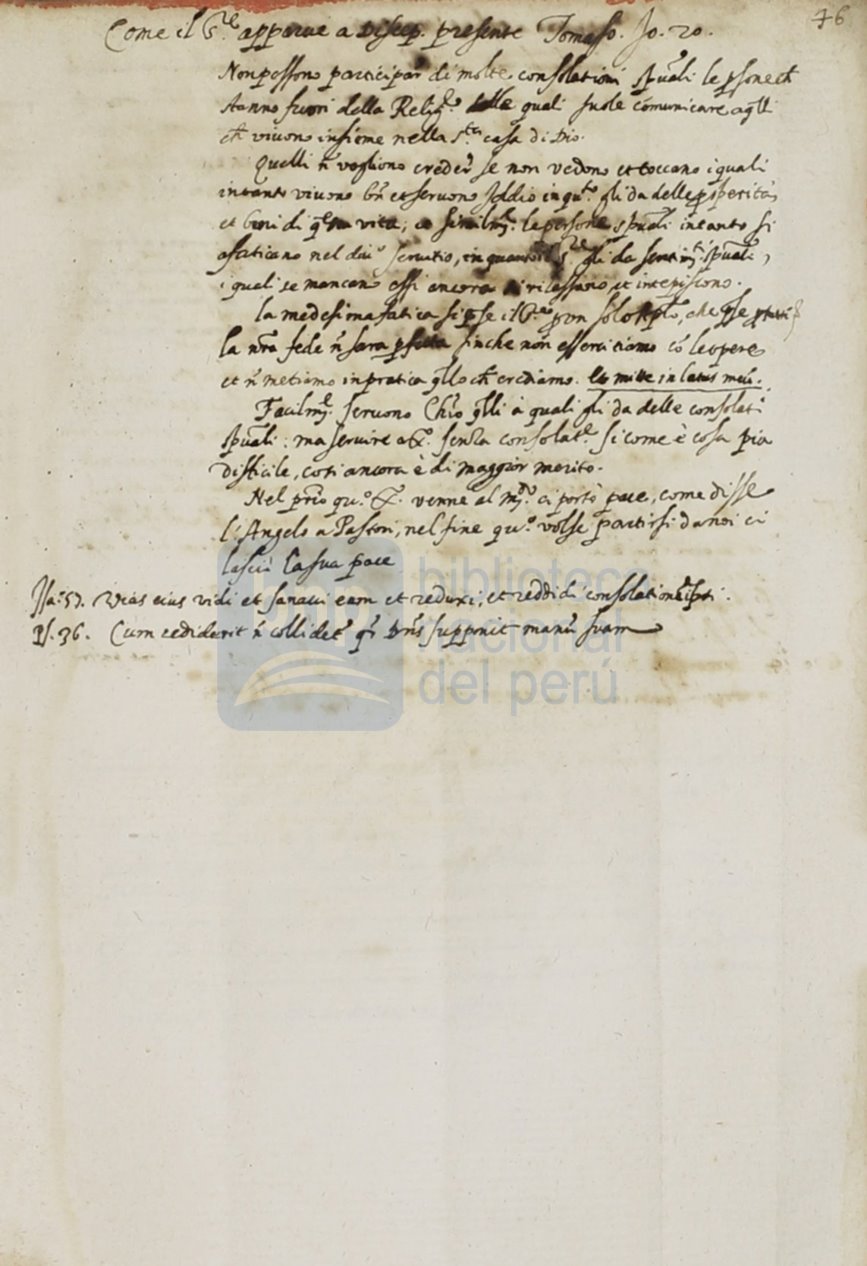 46
Come il S.re apparve a Discep. presente Tomasso. Jo. 20.
Non possono participar di molte consolationi spuali le psone ch
stanno fuori della Relig.e delle quali suole comunicare a qlli
ch vivono insieme nella s.ta casa di Dio.
Quelli ñ vogliono creder se non vedono et toccano i quali
intanto vivono bñ et servono Iddio in qu.to gli da delle psperità
et beni di q.sta vita; et similm.te le persone spuali intanto si
afaticano nel div.o servitio, in quanto il s.re gli da sentim.ti spuali,
i quali se mancano essi ancora si rilassano et intepiscono.
la medesima fatica si pse il S.re p un solo che
la nra fede ñ sara pfetta finche non essercitiamo cõ le opere
et ñ metiamo in pratica qllo ch crediamo. Et mitte in latus meũ.
Facilm.te servono Chro qlli à quali gli da delle consolat.i
spuali: ma servire a X.o senza consolat.e si come è cosa piu
difficile, cosi ancora è di maggior merito.
Nel prio qu.o X.o venne al m.do ci portò pace, come disse
l'Angelo a Pastori, nel fine qu.o volse partirsi da noi ci
lasciò la sua pace
Isa. 57. Vias eius vidi et sanavi eum et reduxi, et reddidi consolationẽ ipsi.
Ps. 36. Cum ceciderit ñ collidet.r q. Dñs supponit manũ suam
biblioteca
nacional
del perú